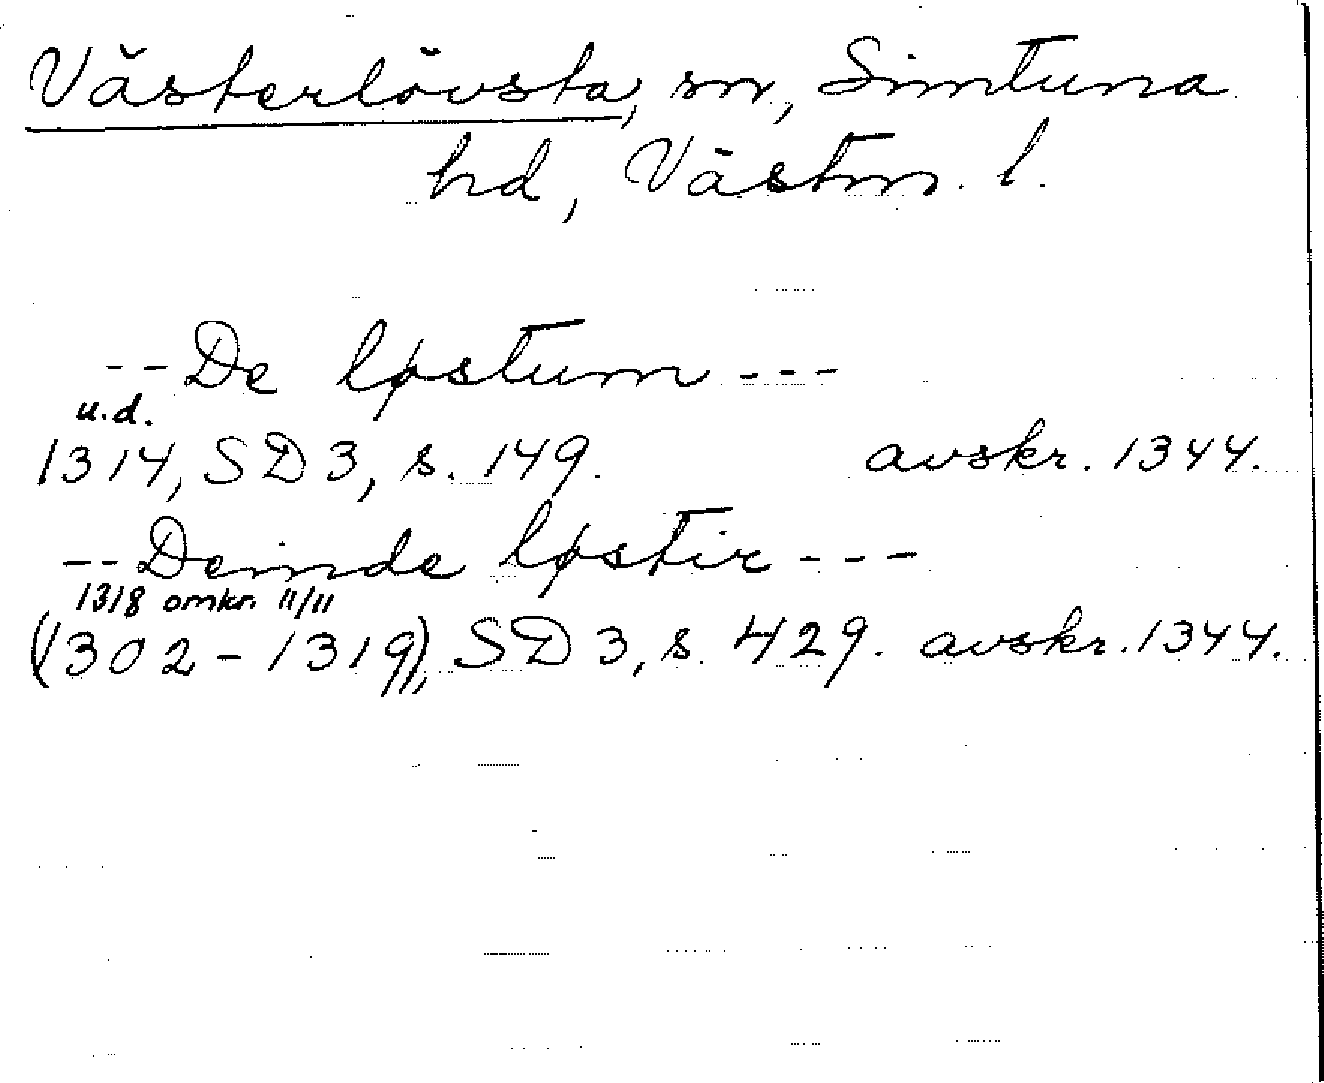 Västerlövsta, sn, Simtuna
hd, Västm. l.
--De løstum---
u.d.
1314, SD 3, s. 149. avskr. 1344.
--Deinde løstir---
1318 omkr. 11/11
(1302-1319), SD 3, s. 429. avskr. 1344.